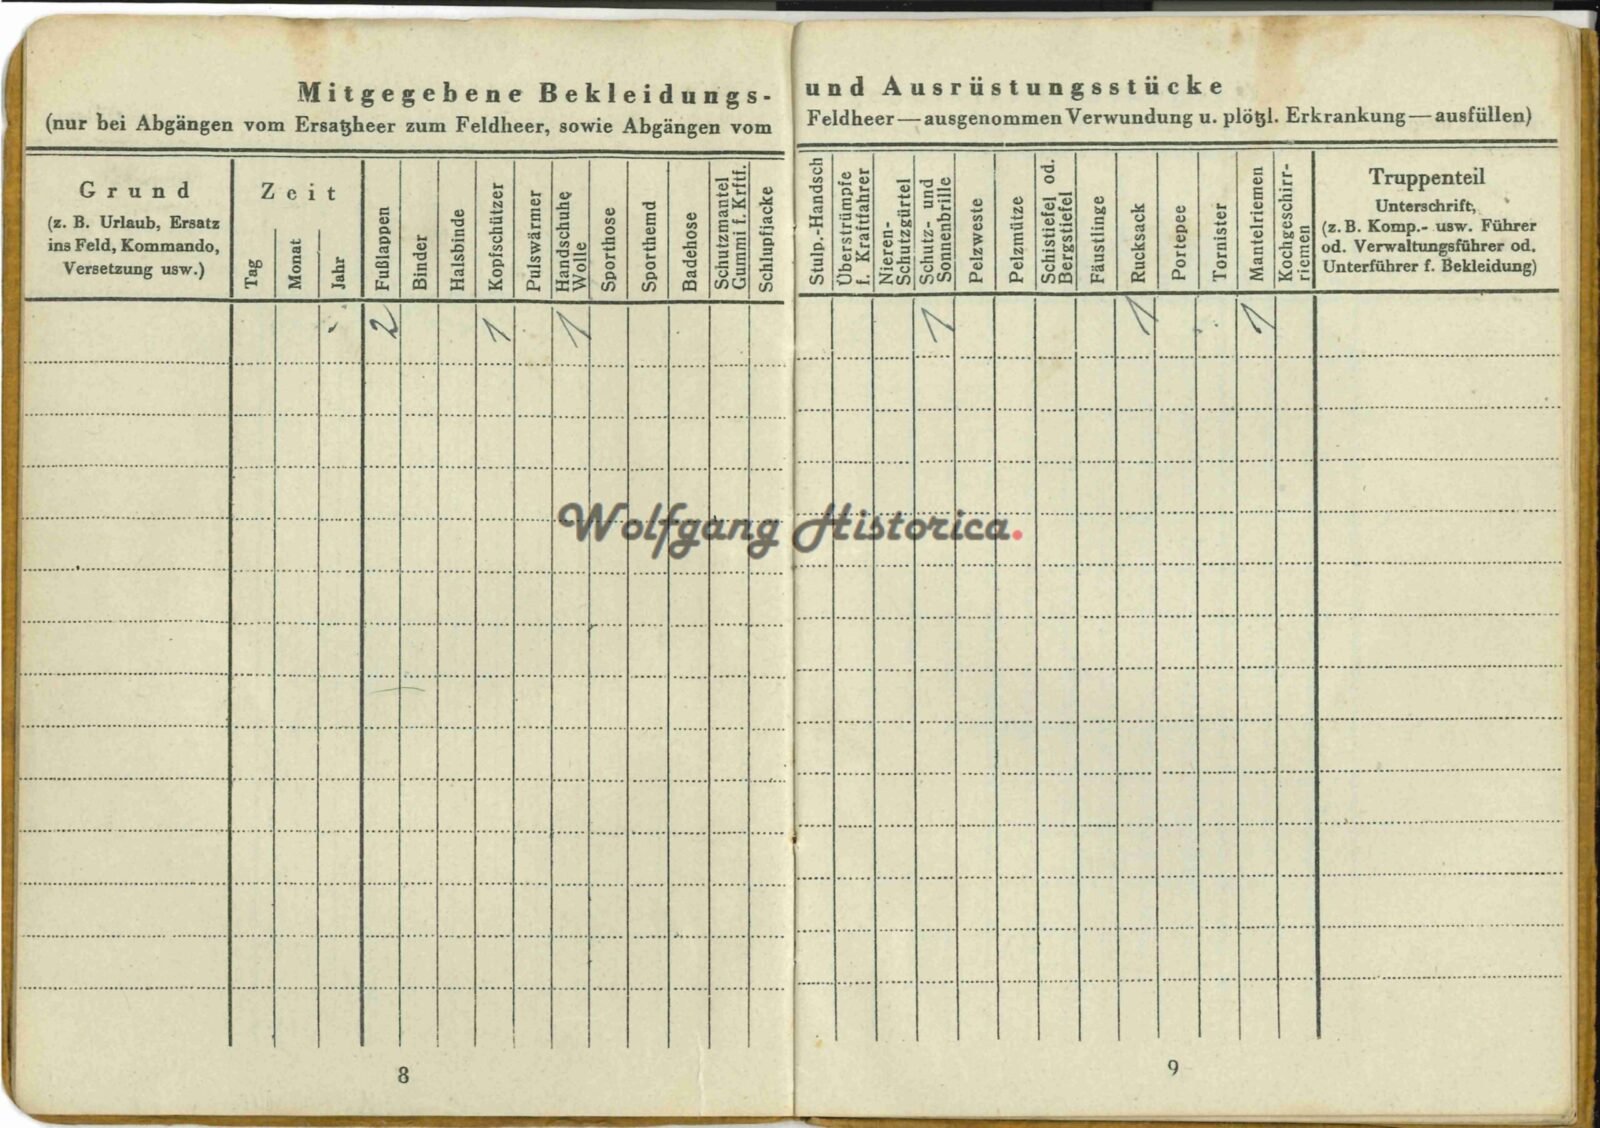 Mitgegebene Bekleidungs-
(nur bei Abgängen vom Ersatzheer zum Feldheer, sowie Abgängen vom
Grund
(z. B. Urlaub, Ersatz
ins Feld, Kommando,
Versetzung usw.)
Zeit
Tag
Monat
Jahr
Fußlappen
Binder
Halsbinde
Kopfschützer
Pulswärmer
Handschuhe
Wolle
Sporthose
Sporthemd
Badehose
Schutzmantel
Gummi f. Krftf.
Schlupfjacke
2 1 1
8
und Ausrüstungsstücke
Feldheer—ausgenommen Verwundung u. plötzl. Erkrankung—ausfüllen)
Stulp.-Handsch
Überstrümpfe
f. Kraftfahrer
Nieren-
Schutzgürtel
Schutz- und
Sonnenbrille
Pelzweste
Pelzmütze
Schistiefel od.
Bergstiefel
Fäustlinge
Rucksack
Portepee
Tornister
Mantelriemen
Kochgeschirr-
riemen
Truppenteil
Unterschrift,
(z. B. Komp.- usw. Führer
od. Verwaltungsführer od.
Unterführer f. Bekleidung)
1 1 1
9
Wolfgang Historica.